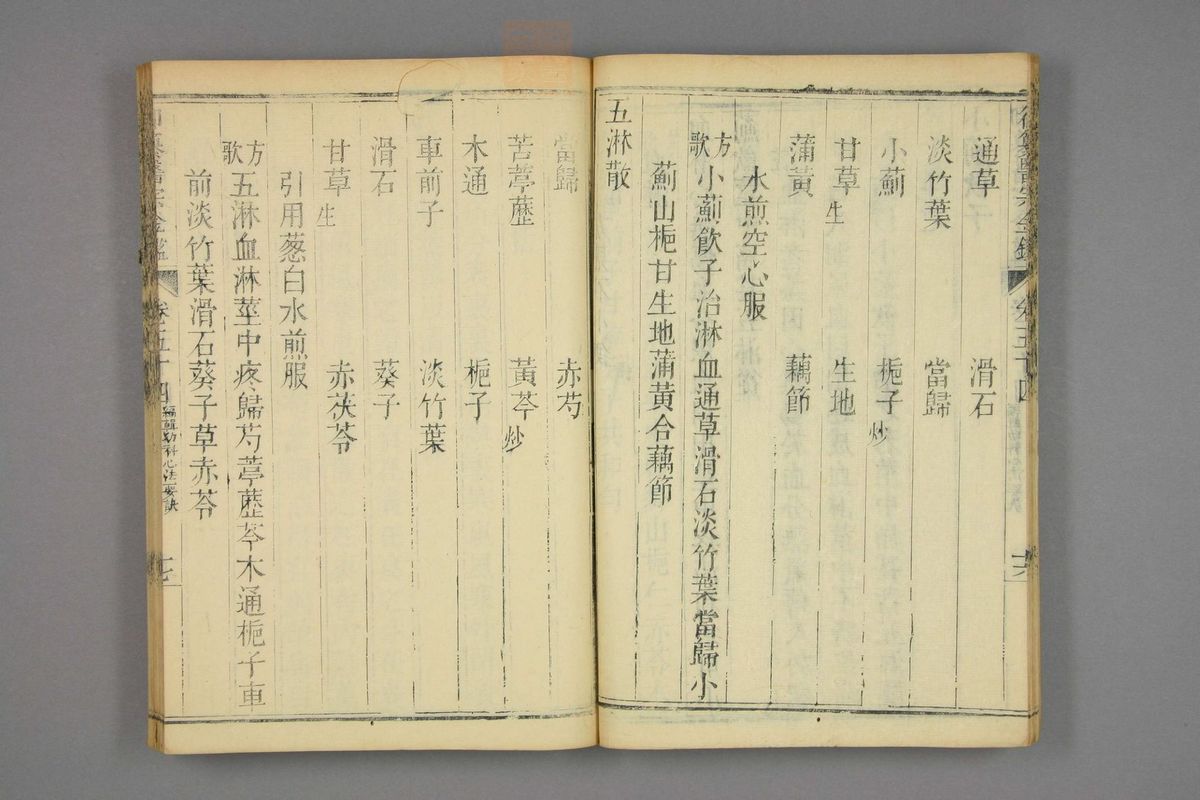 通草　滑石
淡竹葉　當歸
小薊　梔子炒
甘草生　生地
蒲黃　藕節
水煎空心服
方歌　小薊飲子治淋血通草滑石淡竹葉當歸小
薊山梔甘生地蒲黃合藕節
五淋散
當歸　赤芍
苦葶藶　黃芩炒
木通　梔子
車前子　淡竹葉
滑石　葵子
甘草生　赤茯苓
引用葱白水煎服
方歌　五淋血淋莖中疼歸芍葶藶芩木通梔子車
前淡竹葉滑石葵子草赤苓
卷五十四 編輯幼科心法要訣